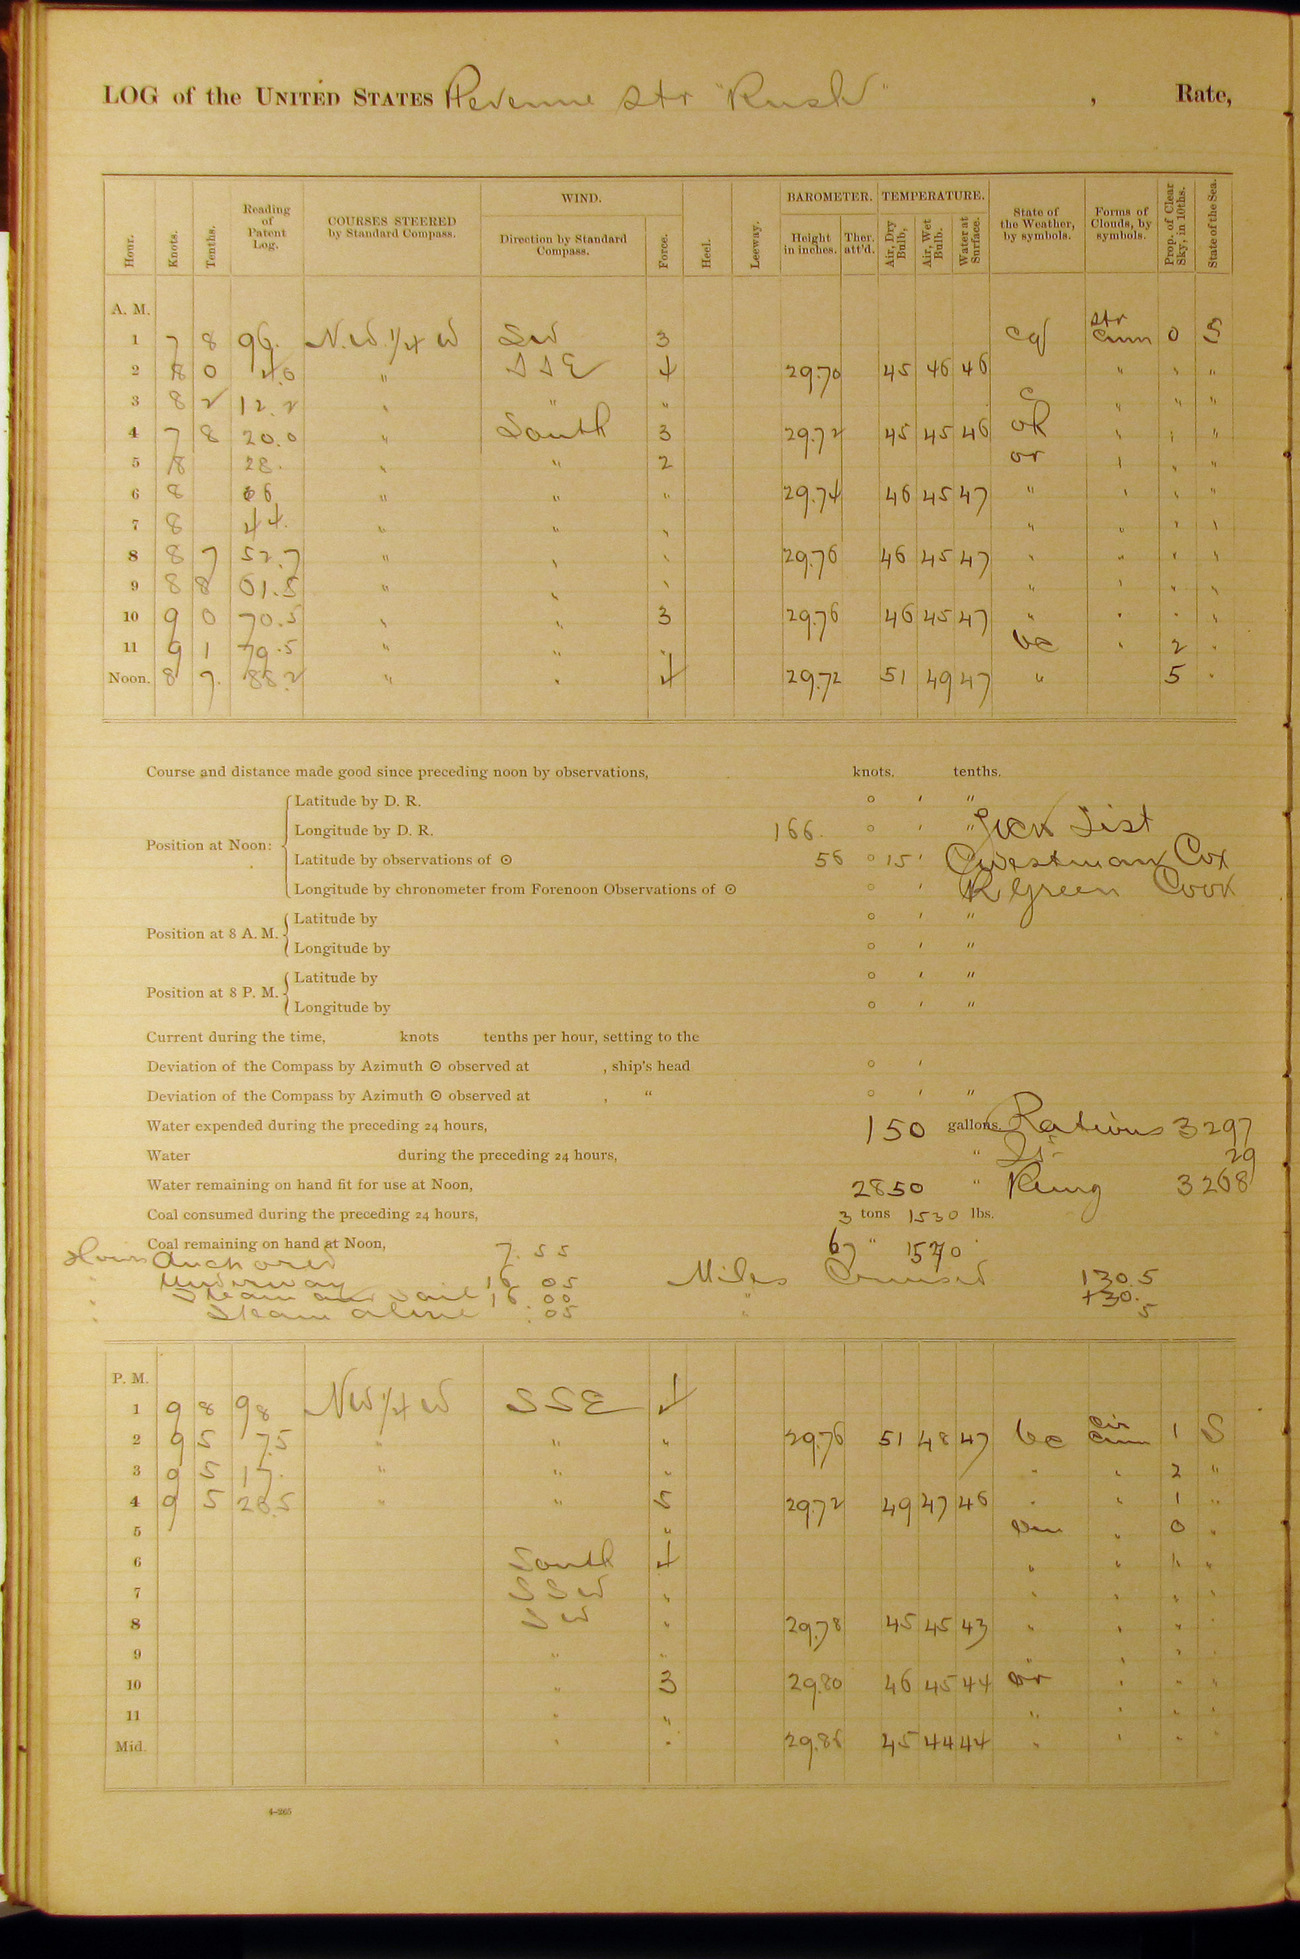 LOG of the UNITED STATES Revenue Str "Rush" , Rate,
Hour. Knots. Tenths. Reading of Patent Log. COURSES STEERED by Standard Compass. WIND. Direction by Standard Compass. Force. Heel. Leeway. BAROMETER. Height in inches. Ther. att'd. TEMPERATURE. Air, Dry Bulb, Air, Wet Bulb. Water at Surface. State of the Weather, by symbols. Forms of Clouds, by symbols. Prop. of Clear Sky, in 10ths. State of the Sea.
A. M.
1 7 8 96. N.W. 1/4 W SW 3 cq Str Cum 0 S
2 8 0 4.0 " SSE 4 29.70 45 46 46 " " "
3 8 2 12.2 " " " c " " "
4 7 8 20.0 " South 3 29.72 45 45 46 " " "
5 8 28. " " 2 or " " "
6 8 36 " " " 29.74 46 45 47 " " " "
7 8 44. " " " " " " "
8 8 7 52.7 " " " 29.76 46 45 47 " " " "
9 8 8 61.5 " " " " " " "
10 9 0 70.5 " " 3 29.76 46 45 47 " " " "
11 9 1 79.5 " " " bc " 2 "
Noon. 8 7. 88.2 " " 4 29.72 51 49 47 " 5 "
Course and distance made good since preceding noon by observations, knots. tenths.
Position at Noon:
Latitude by D. R. ° ′ ″
Longitude by D. R. 166. ° ′ ″ Sick List
Latitude by observations of ☉ 56 ° 15 ′ Westman Cox
Longitude by chronometer from Forenoon Observations of ☉ ° ′ R Green Cook
Position at 8 A. M.
Latitude by ° ′ ″
Longitude by ° ′ ″
Position at 8 P. M.
Latitude by ° ′ ″
Longitude by ° ′ ″
Current during the time, knots tenths per hour, setting to the
Deviation of the Compass by Azimuth ☉ observed at , ship's head ° ′
Deviation of the Compass by Azimuth ☉ observed at , " ° ′ ″
Water expended during the preceding 24 hours, 150 gallons. Rations 3297
Water during the preceding 24 hours, " 29
Water remaining on hand fit for use at Noon, 2850 " Remg 3268
Coal consumed during the preceding 24 hours, 3 tons 1530 lbs.
Coal remaining on hand at Noon, 67 " 1570 "
Hours Anchored 7. 55
" Underway 16 05 Miles Cruised 130.5
" Steam and Sail 16 00 " 130.
" Steam alone . 05 " 5
P. M.
1 9 8 98 NW 1/4 W SSE 4
2 9 5 7.5 " " " 29.76 51 48 47 bc Cir Cum 1 S
3 9 5 17. " " " " " 2 "
4 9 5 26.5 " " 5 29.72 49 47 46 " " 1 "
5 " " 0 "
6 South 4 " " " "
7 SSW " " " " "
8 SW " 29.78 45 45 43 " " " "
9 " " " " "
10 " 3 29.80 46 45 44 or " " "
11 " " " " " "
Mid. " " 29.86 45 44 44 " " " "
4-265